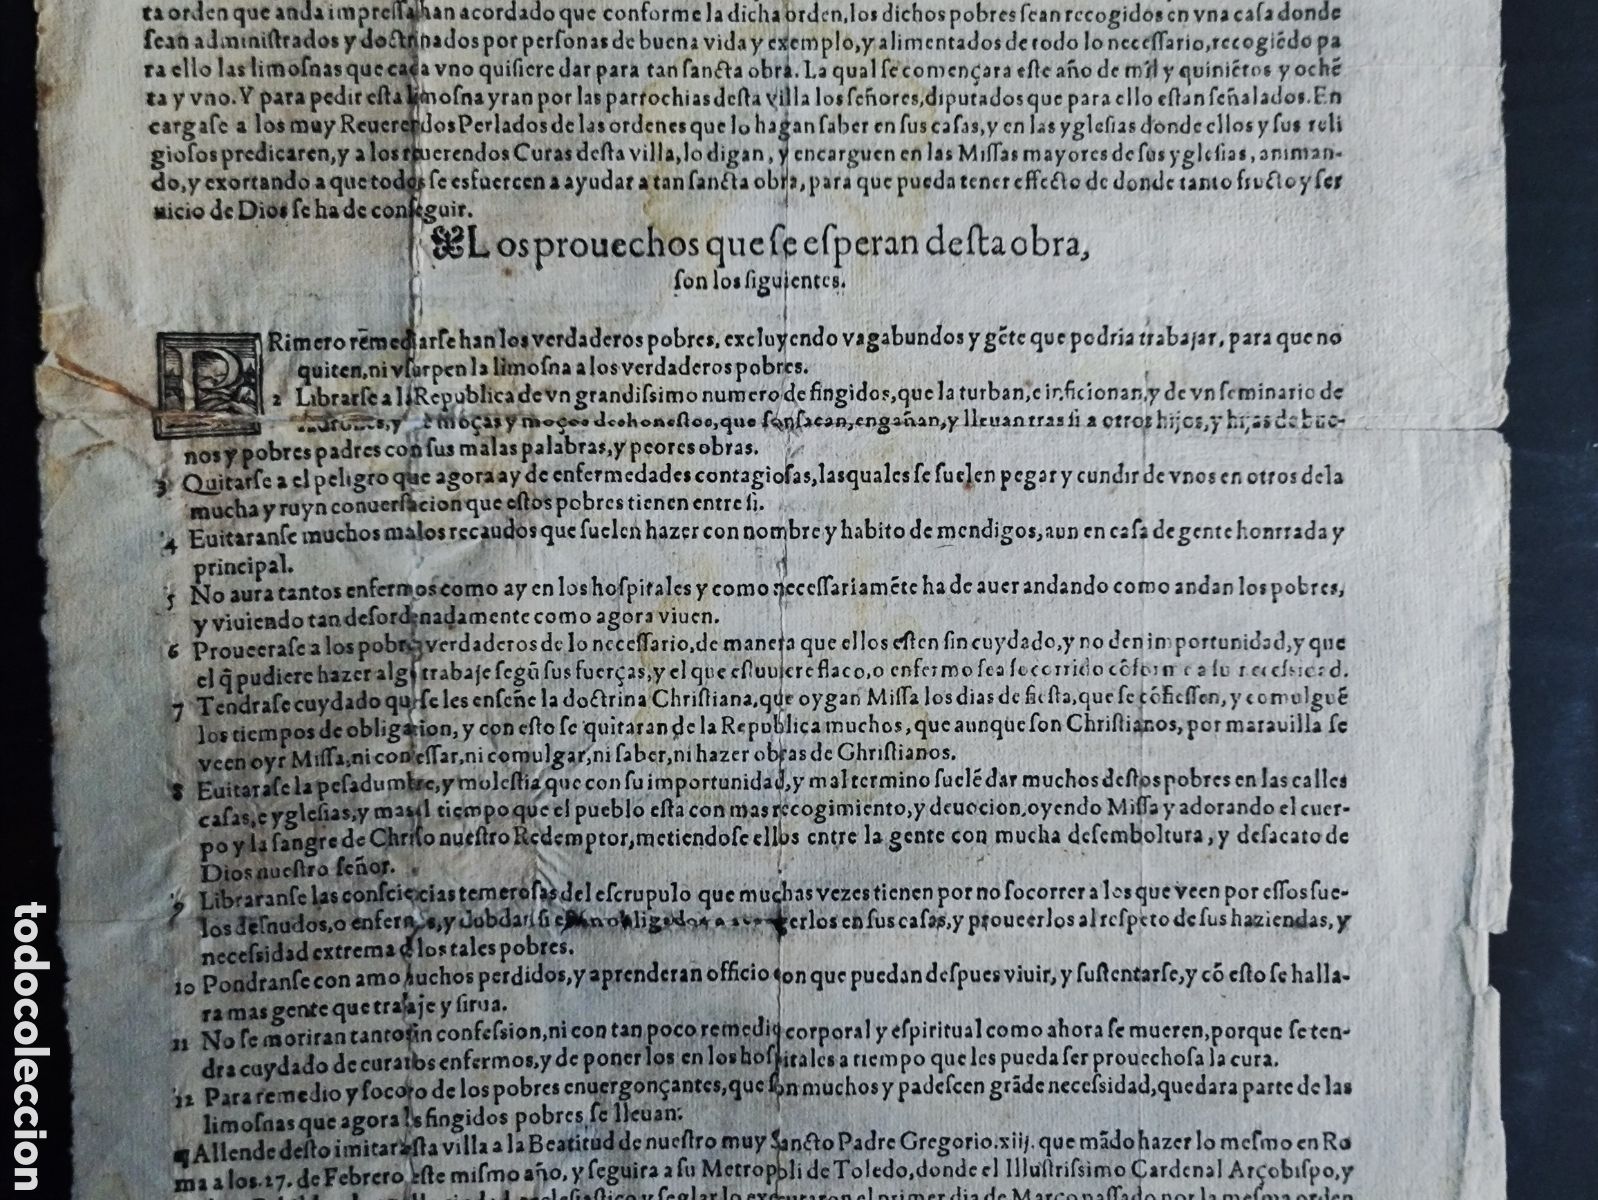 ta orden que anda impressa han acordado que conforme la dicha orden, los dichos pobres sean recogidos en vna casa donde
sean administrados y doctrinados por personas de buena vida y exemplo, y alimentados de todo lo necessario, recogiẽdo pa
ra ello las limosnas que cada vno quisiere dar para tan sancta obra. La qual se començara este año de mil y quiniẽtos y ochẽ
ta y vno. Y para pedir esta limosna yran por las parrochias desta villa los señores, diputados que para ello estan señalados. En
cargase a los muy Reuerendos Perlados de las ordenes que lo hagan saber en sus casas, y en las yglesias donde ellos y sus reli
giosos predicaren, y a los reuerendos Curas desta villa, lo digan, y encarguen en las Missas mayores de sus yglesias, animan-
do, y exortando a que todos se esfuercen a ayudar a tan sancta obra, para que pueda tener effecto de donde tanto fructo y ser
uicio de Dios se ha de conseguir.
Los prouechos que se esperan desta obra,
son los siguientes.
PRimero rẽmediarse han los verdaderos pobres, excluyendo vagabundos y gẽte que podria trabajar, para que no
quiten, ni vsurpen la limosna a los verdaderos pobres.
2 Librarse a la Republica de vn grandissimo numero de fingidos, que la turban, e inficionan, y de vn seminario de
ladrones, y de moças y moços deshonestos, que sonsacan, engañan, y lleuan tras si a otros hijos, y hijas de bue-
nos y pobres padres con sus malas palabras, y peores obras.
3 Quitarse a el peligro que agora ay de enfermedades contagiosas, las quales se suelen pegar y cundir de vnos en otros de la
mucha y ruyn conuersacion que estos pobres tienen entre si.
4 Euitaranse muchos malos recaudos que suelen hazer con nombre y habito de mendigos, aun en casa de gente honrrada y
principal.
5 No aura tantos enfermos como ay en los hospitales y como necessariamẽte ha de auer andando como andan los pobres,
y viuiendo tan desordenadamente como agora viuen.
6 Proueerase a los pobres verdaderos de lo necessario, de manera que ellos esten sin cuydado, y no den importunidad, y que
el q̃ pudiere hazer algũ trabaje segũ sus fuerças, y el que estuuiere flaco, o enfermo sea socorrido cõforme a su necessidad.
7 Tendrase cuydado que se les enseñe la doctrina Christiana, que oygan Missa los dias de fiesta, que se cõfiessen, y comulguẽ
los tiempos de obligacion, y con esto se quitaran de la Republica muchos, que aunque son Christianos, por marauilla se
veen oyr Missa, ni confessar, ni comulgar, ni saber, ni hazer obras de Christianos.
8 Euitarase la pesadumbre, y molestia que con su importunidad, y mal termino suelẽ dar muchos destos pobres en las calles
casas, e yglesias, y mas al tiempo que el pueblo esta con mas recogimiento, y deuocion, oyendo Missa y adorando el cuer-
po y la sangre de Christo nuestro Redemptor, metiendose ellos entre la gente con mucha desemboltura, y desacato de
Dios nuestro señor.
9 Libraranse las consciencias temerosas del escrupulo que muchas vezes tienen por no socorrer a los que veen por essos sue-
los desnudos, o enfermos, y dubdar si estan obligados a acogerlos en sus casas, y proueerlos al respeto de sus haziendas, y
necessidad extrema de los tales pobres.
10 Pondranse con amo muchos perdidos, y aprenderan officio con que puedan despues viuir, y sustentarse, y cõ esto se halla-
ra mas gente que trabaje y sirua.
11 No se moriran tanto sin confession, ni con tan poco remedio corporal y espiritual como ahora se mueren, porque se ten-
dra cuydado de curar los enfermos, y de poner los en los hospitales a tiempo que les pueda ser prouechosa la cura.
12 Para remedio y socoro de los pobres enuergonçantes, que son muchos y padescen grãde necessidad, quedara parte de las
limosnas que agora los fingidos pobres se lleuan:
¶ Allende desto imitara esta villa a la Beatitud de nuestro muy Sancto Padre Gregorio. xiij. que mãdo hazer lo mesmo en Ro
ma a los. 27. de Febrero este mismo año, y seguira a su Metropoli de Toledo, donde el Illustrissimo Cardenal Arçobispo, y
ecclesiastico y seglar lo executaron el primer dia de Março passado por la mesma orden
todocoleccion